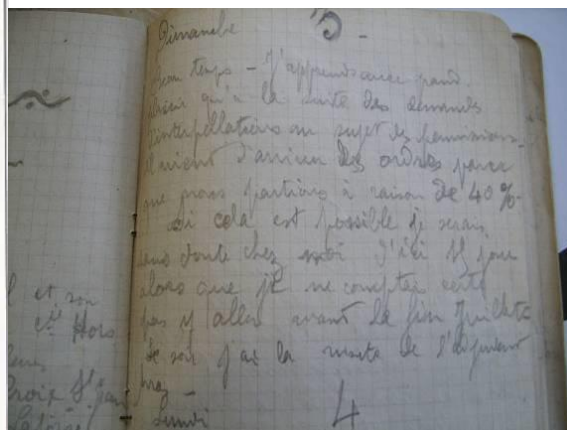 Dimanche 3 -
Beau temps - J'apprends avec grand
plaisir qu'à la suite des demandes
d'interpellations au sujet des permissions
il vient d'arriver des ordres pour
que nous partions à raison de 40 %
si cela est possible je serais
sans doute chez moi d'ici 15 jours
alors que je ne comptais certes
pas y aller avant la fin Juillet
ce soir j'ai la visite de l'adjudant
Lundi 4
l et son
Cie Hors
Croix St Jean